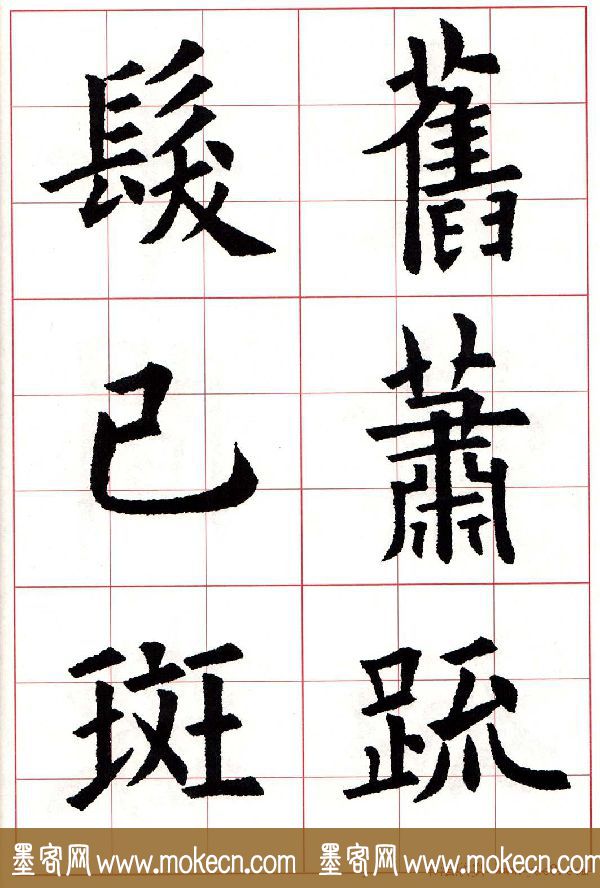 舊蕭䟽
髮已斑
墨客网 www.mokecn.com 墨客网 www.mokecn.com